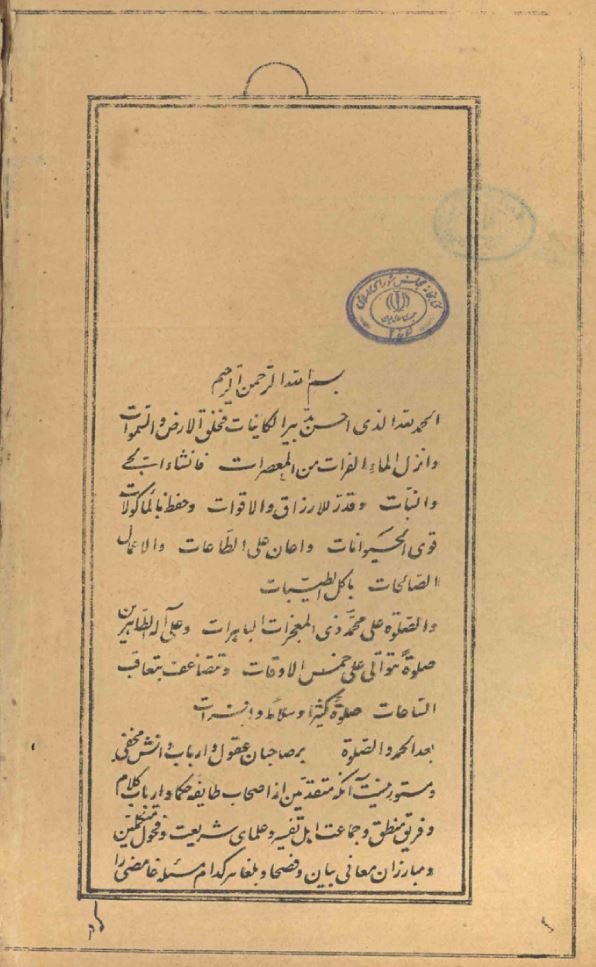 بسم الله الرحمن الرحیم
الحمد لله الذی احسن تدبیر الکاینات فخلق الارض والسموات
وانزل الماء الفرات من المعصرات فانشاء الحب
والنبات وقدر للارزاق والاقوات وحفظ بالماکولات
قوی الحیوانات واعان علی الطاعات والاعمال
الصالحات باکل الطیبات
والصلوة علی محمد ذی المعجزات الباهرات وعلی آله الطاهرین
صلوة تتوالی علی خمس الاوقات وتتضاعف بتعاقب
الساعات صلوة کثیرا
بعد الحمد والصلوة بر صاحبان عقول و ارباب دانش مخفی
ومستور نیست آنکه متقدمین از اصحاب طایفه حکما و ارباب کلام
و فریق منطق و جماعت اهل تفسیر و علمای شریعت و فحول متکلمین
و مبارزان معانی بیان و فصحا و بلغا هر کدام مسئله غامضی را
کتابخانه مجلس شورای اسلامی